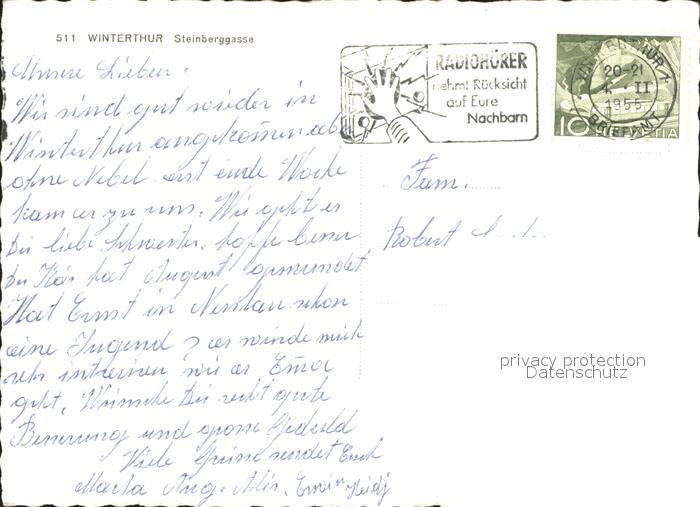 511 WINTERTHUR Steinberggasse
Unsere Lieben.
Wir sind gut wieder in
Winterthur angekommen
ohne Nebel erst ende Woche
kam er zu uns. Wie geht es
Dir liebe Schwester, hoffe besser
Der Käs hat August gemundet
Hat Ernst in Nesslau schon
eine Jugend er würde mich
sehr wie es Ema
geht, Wünsche Dir recht gute
Besserung und grosse Geduld
Viele Grüsse sendet Euch
Martha Aug. Alis. Erwin Heidj
RADIOHÖRER
nehmt Rücksicht
auf Eure
Nachbarn
WINTERTHUR 1
20-21
4. II
1955
BRIEFANT.
10 HELVETIA
Fam.
Robert
privacy protection
Datenschutz